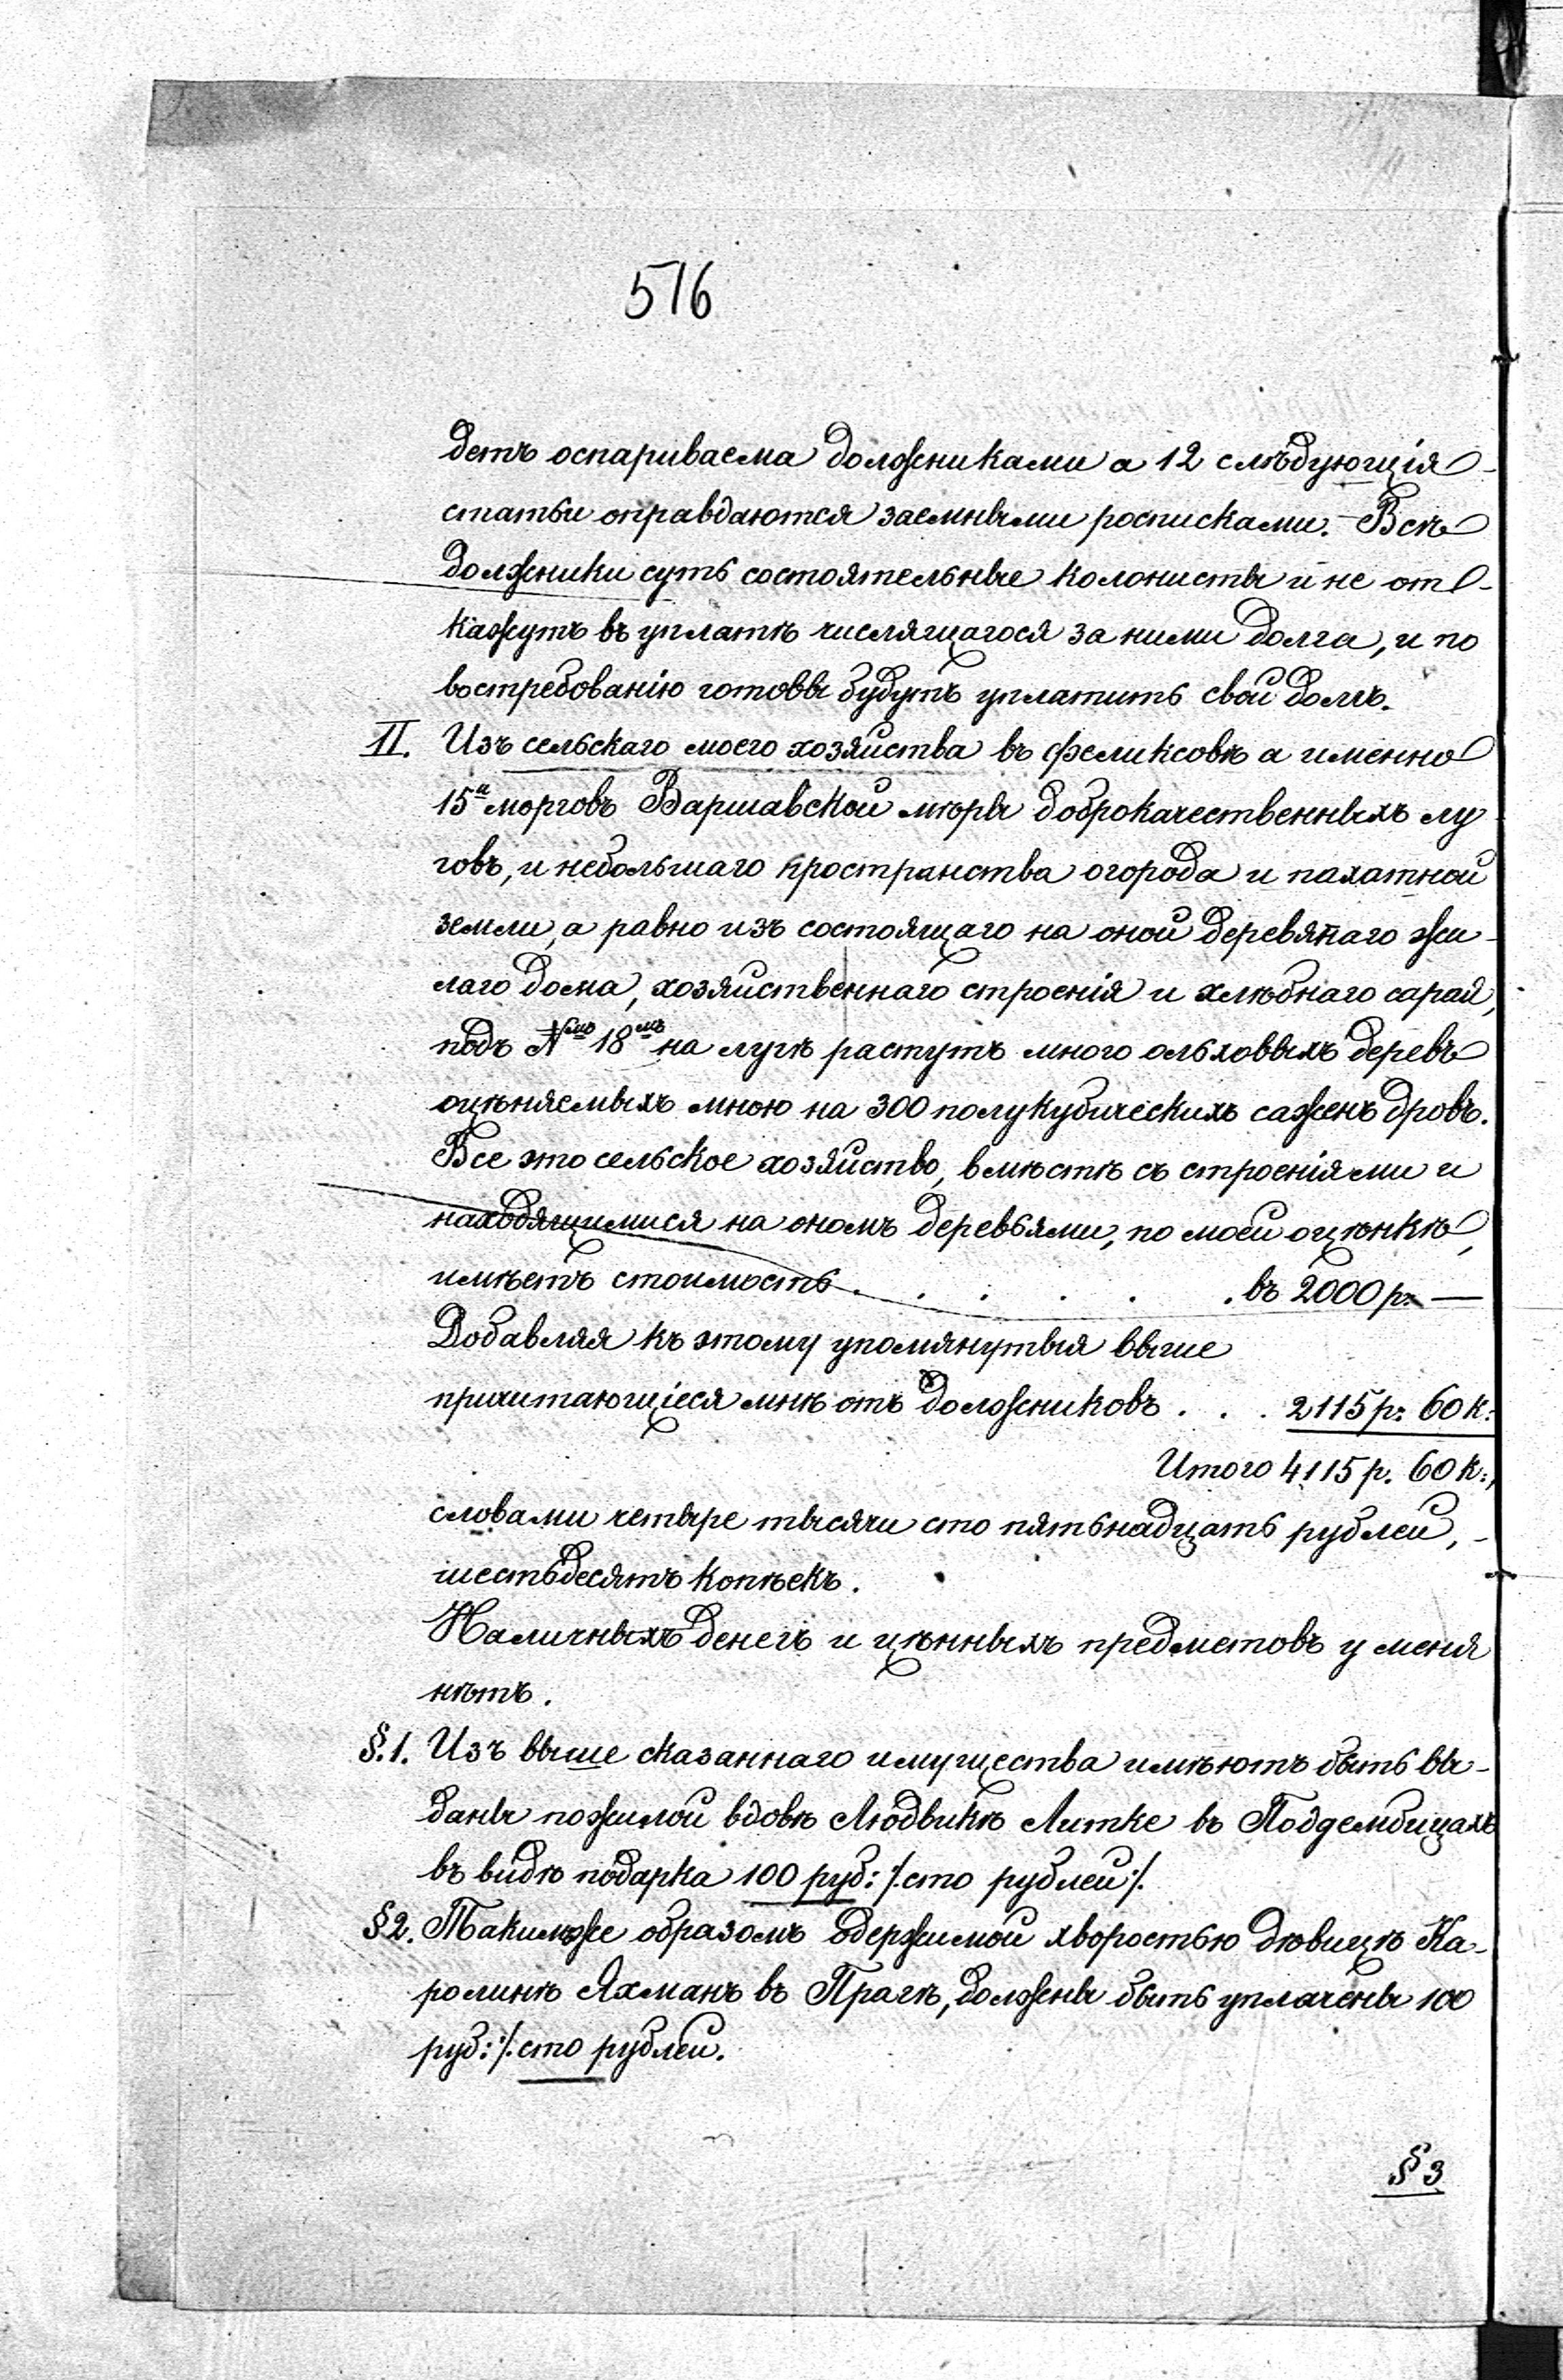 576
детъ оспариваема должниками а 12 слѣдующія
статьи оправдаются заемными росписками. - Всѣ
должники суть состоятельные колонисты и не от-
кажутъ въ уплатѣ числящагося за ними долга, и по
востребованію готовы будутъ уплатить свой долгъ.
II. Изъ сельскаго моего хозяйства въ Феликсовѣ а именно
15и морговъ Варшавской мѣры доброкачественныхъ лу
говъ, и небольшаго пространства огорода и пахатной
земли, а равно изъ состоящаго на оной деревяннаго жи-
лаго дома, хозяйственнаго строенія и хлѣбнаго сарая,
подъ №мъ 18мъ на лугѣ растутъ много ольховыхъ деревъ
оцѣняемыхъ мною на 300 полукубическихъ саженъ дровъ.
Все это сельское хозяйство, вмѣстѣ съ строеніями и
находящимися на ономъ деревьями, по моей оцѣнкѣ,
имѣетъ стоимость . . . . . . въ 2000 р: —
Добавляя къ этому упомянутыя выше
причитающіеся мнѣ отъ должниковъ . . . 2115 р: 60 к:
Итого 4115 р. 60 к:,
словами четыре тысячи сто пятьнадцать рублей, -
шестьдесятъ копѣекъ.
Наличныхъ денегъ и цѣнныхъ предметовъ у меня
нѣтъ.
§.1. Изъ выше сказаннаго имущества имѣютъ быть вы-
даны пожилой вдовѣ Людвикѣ Литке въ Поддембицахъ
въ видѣ подарка 100 руб: /. сто рублей /.
§2. Такимже образомъ одержимой хворостью дѣвицѣ Ка-
ролинѣ Яхманъ въ Прагѣ, должны быть уплачены 100
руб: /. сто рублей.
§ 3